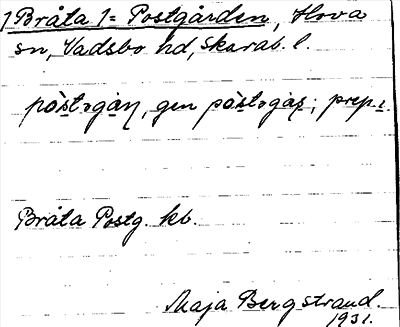 1 Bråta 1 = Postgården, Hova
sn, Vadsbo hd, Skarab. l.
gen prep. i.
Bråta Postg. kb.
Maja Bergstrand.
1931.